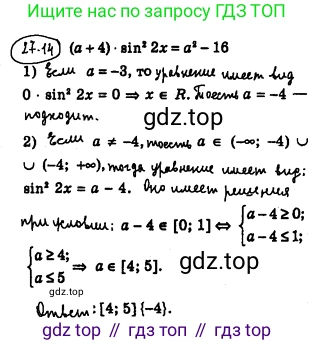 Ищите нас по запросу
ГДЗ ТОП
27.14) (a + 4) · sin² 2x = a² - 16
1) Если a = -3, то уравнение имеет вид
0 · sin² 2x = 0 ⇒ x ∈ R. Тоесть a = -4 —
подходит.
gdz.top
2) Если a ≠ -4, тоесть a ∈ (-∞; -4) ∪
∪ (-4; +∞), тогда уравнение имеет вид:
sin² 2x = a - 4. Оно имеет решения
при условии: a - 4 ∈ [0; 1] ⇔ { a - 4 ≥ 0; a - 4 ≤ 1;
{ a ≥ 4; a ≤ 5 ⇒ a ∈ [4; 5].
gdz.top
Ответ: [4; 5] {-4}.
gdz.top // gdz.top // gdz.top